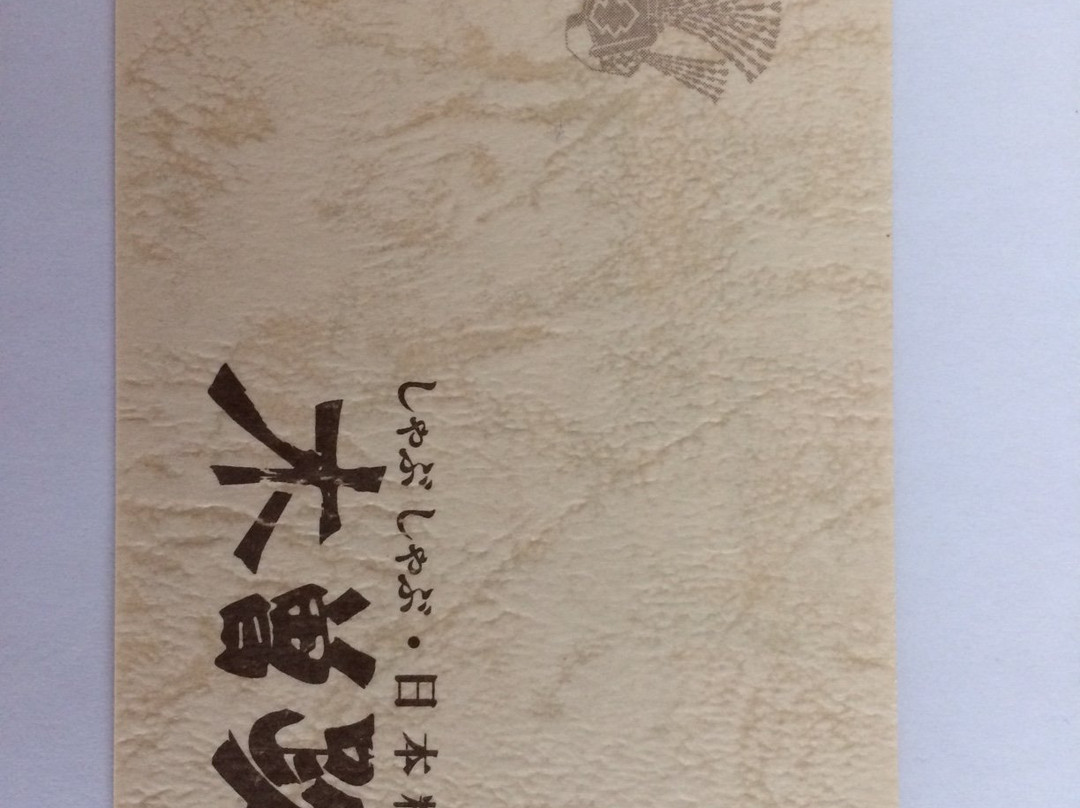 しゃぶしゃぶ・日本
木曽